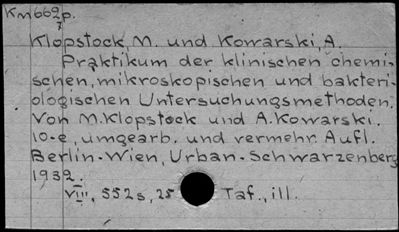 Km662p.
Klopstock, M. und Kowarski, A.
Praktikum der klinischen chemi-
schen, mikroskopischen und bakteri-
ologischen Untersuchungsmethoden.
Von M. Klopstock und A. Kowarski.
10-e, umgearb. und vermehr. Aufl.
Berlin-Wien, Urban-Schwarzenberg
1932.
VIII, 552s, 25 Taf., ill.